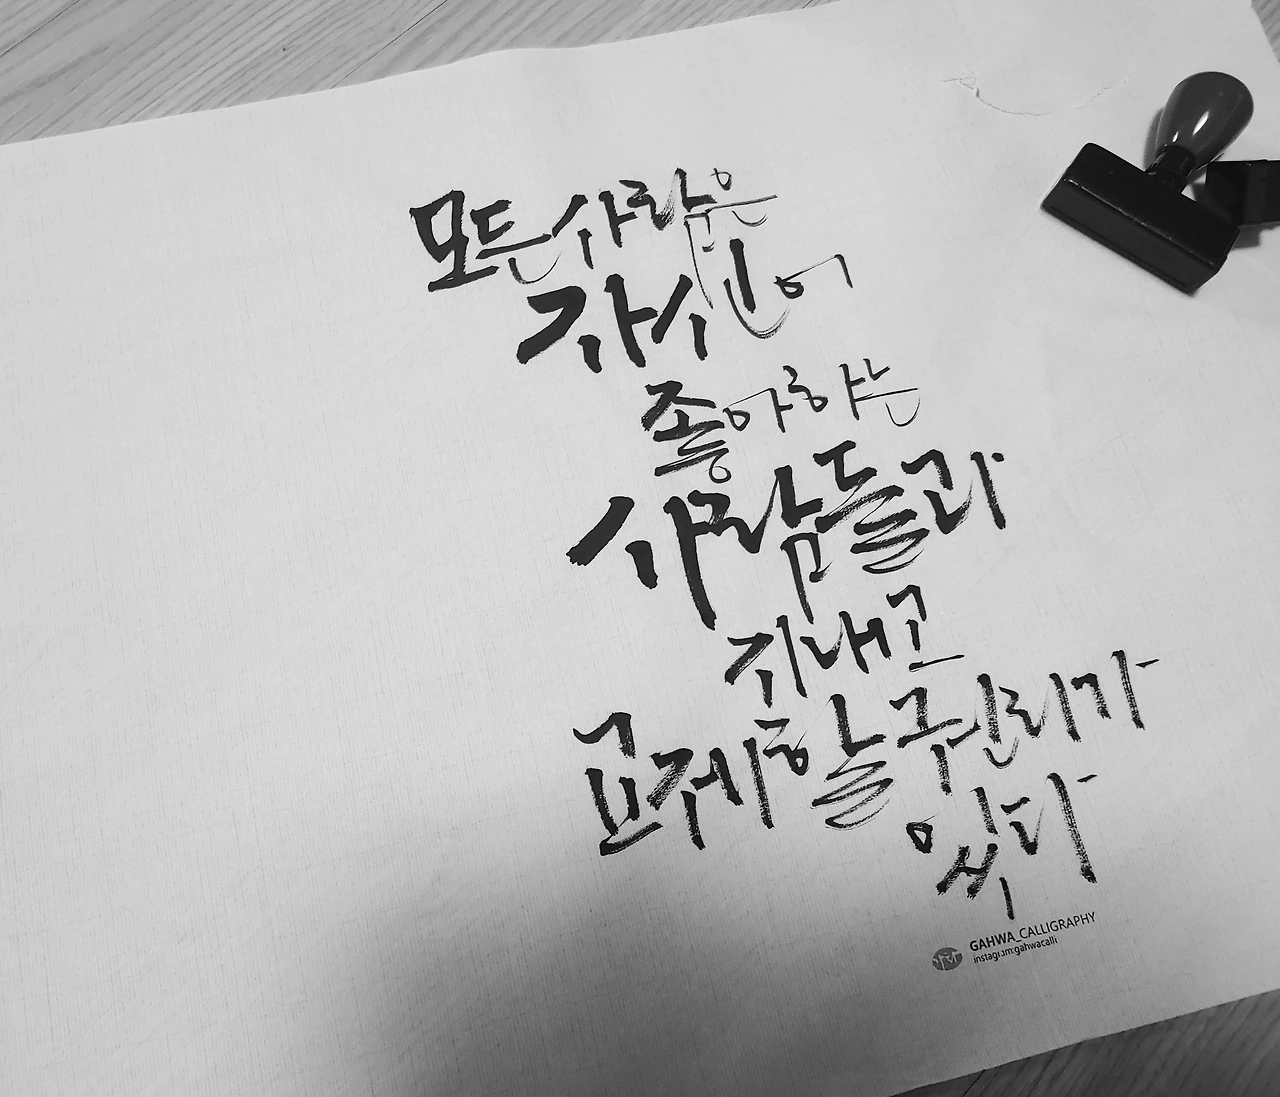 모든 사람은
자신이
좋아하는
사람들과
지내고
교제할 권리가
있다
GAHWA_CALLIGRAPHY
instagram:gahwacalli